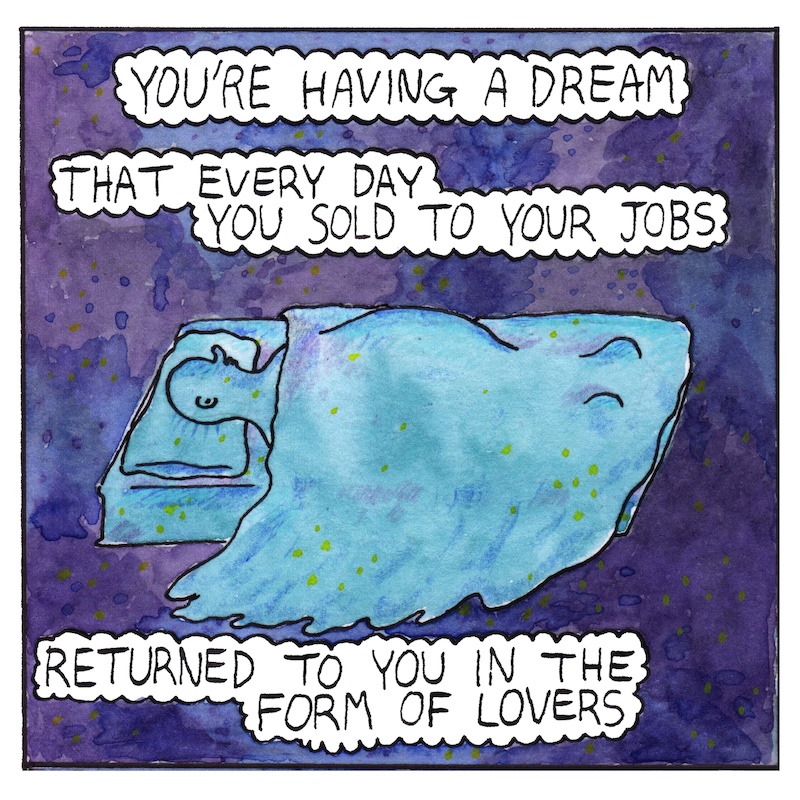 YOU'RE HAVING A DREAM
THAT EVERY DAY
YOU SOLD TO YOUR JOBS
RETURNED TO YOU IN THE
FORM OF LOVERS